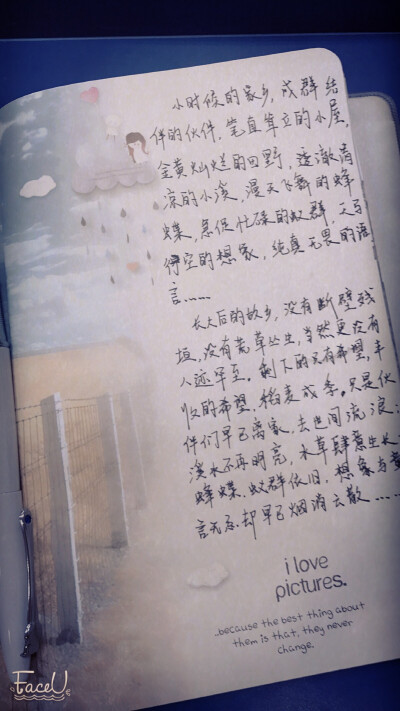 小时候的家乡,成群结
伴的伙伴,笔直耸立的小屋,
金黄灿烂的田野,透澈清
凉的小溪,漫天飞舞的蜂
蝶,急促忙碌的蚁群,天马
行空的想象,纯真无畏的谣
言……
长大后的故乡,没有断壁残
垣,没有荒草丛生,当然更没有
人迹罕至。剩下的只有希望,丰
收的希望,稻麦成季。只是伙
伴们早已离家,去世间流浪;
溪水不再明亮,水草肆意生长
蜂蝶、蚁群依旧,想象与童
言无忌却早已烟消云散……
i love
pictures.
..because the best thing about
them is that, they never
change.
FaceU